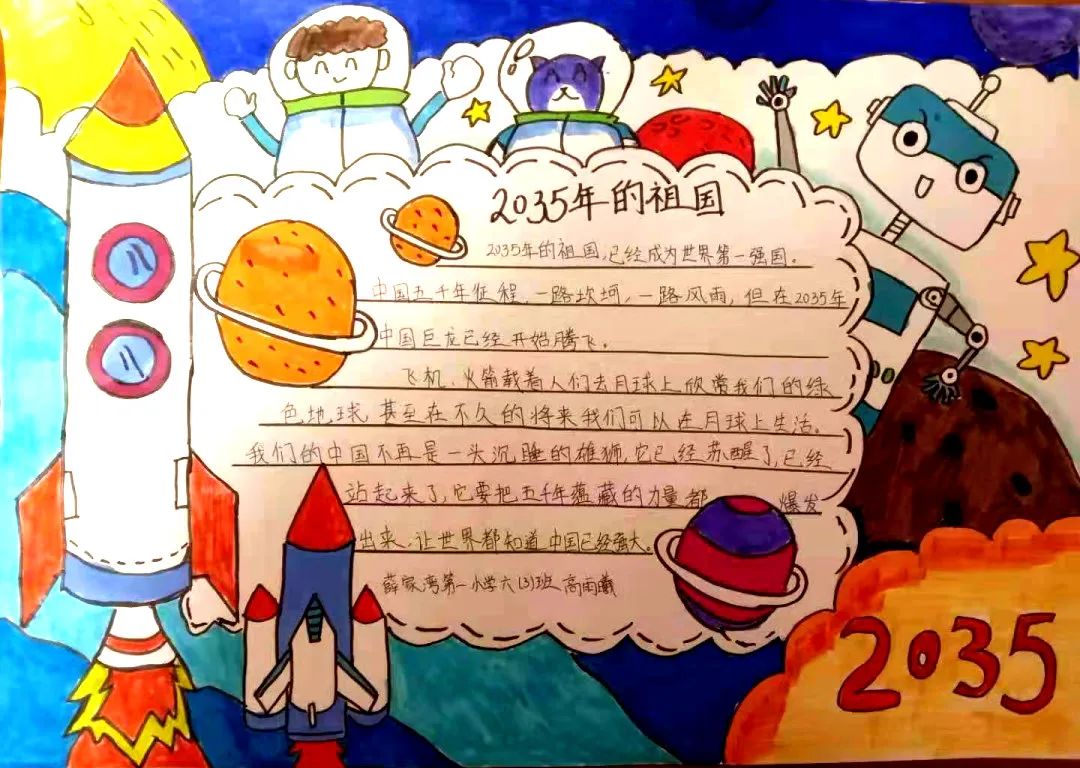 2035年的祖国
2035年的祖国,已经成为世界第一强国。
中国五千年征程,一路坎坷,一路风雨,但在2035年
中国巨龙已经开始腾飞。
飞机、火箭载着人们去月球上欣赏我们的绿
色地球,甚至在不久的将来我们可以在月球上生活。
我们的中国不再是一头沉睡的雄狮,它已经苏醒了,已经
站起来了,它要把五千年蕴藏的力量都 爆发
出来,让世界都知道中国已经强大。
薛家湾第一小学六(3)班 高雨曦
2035